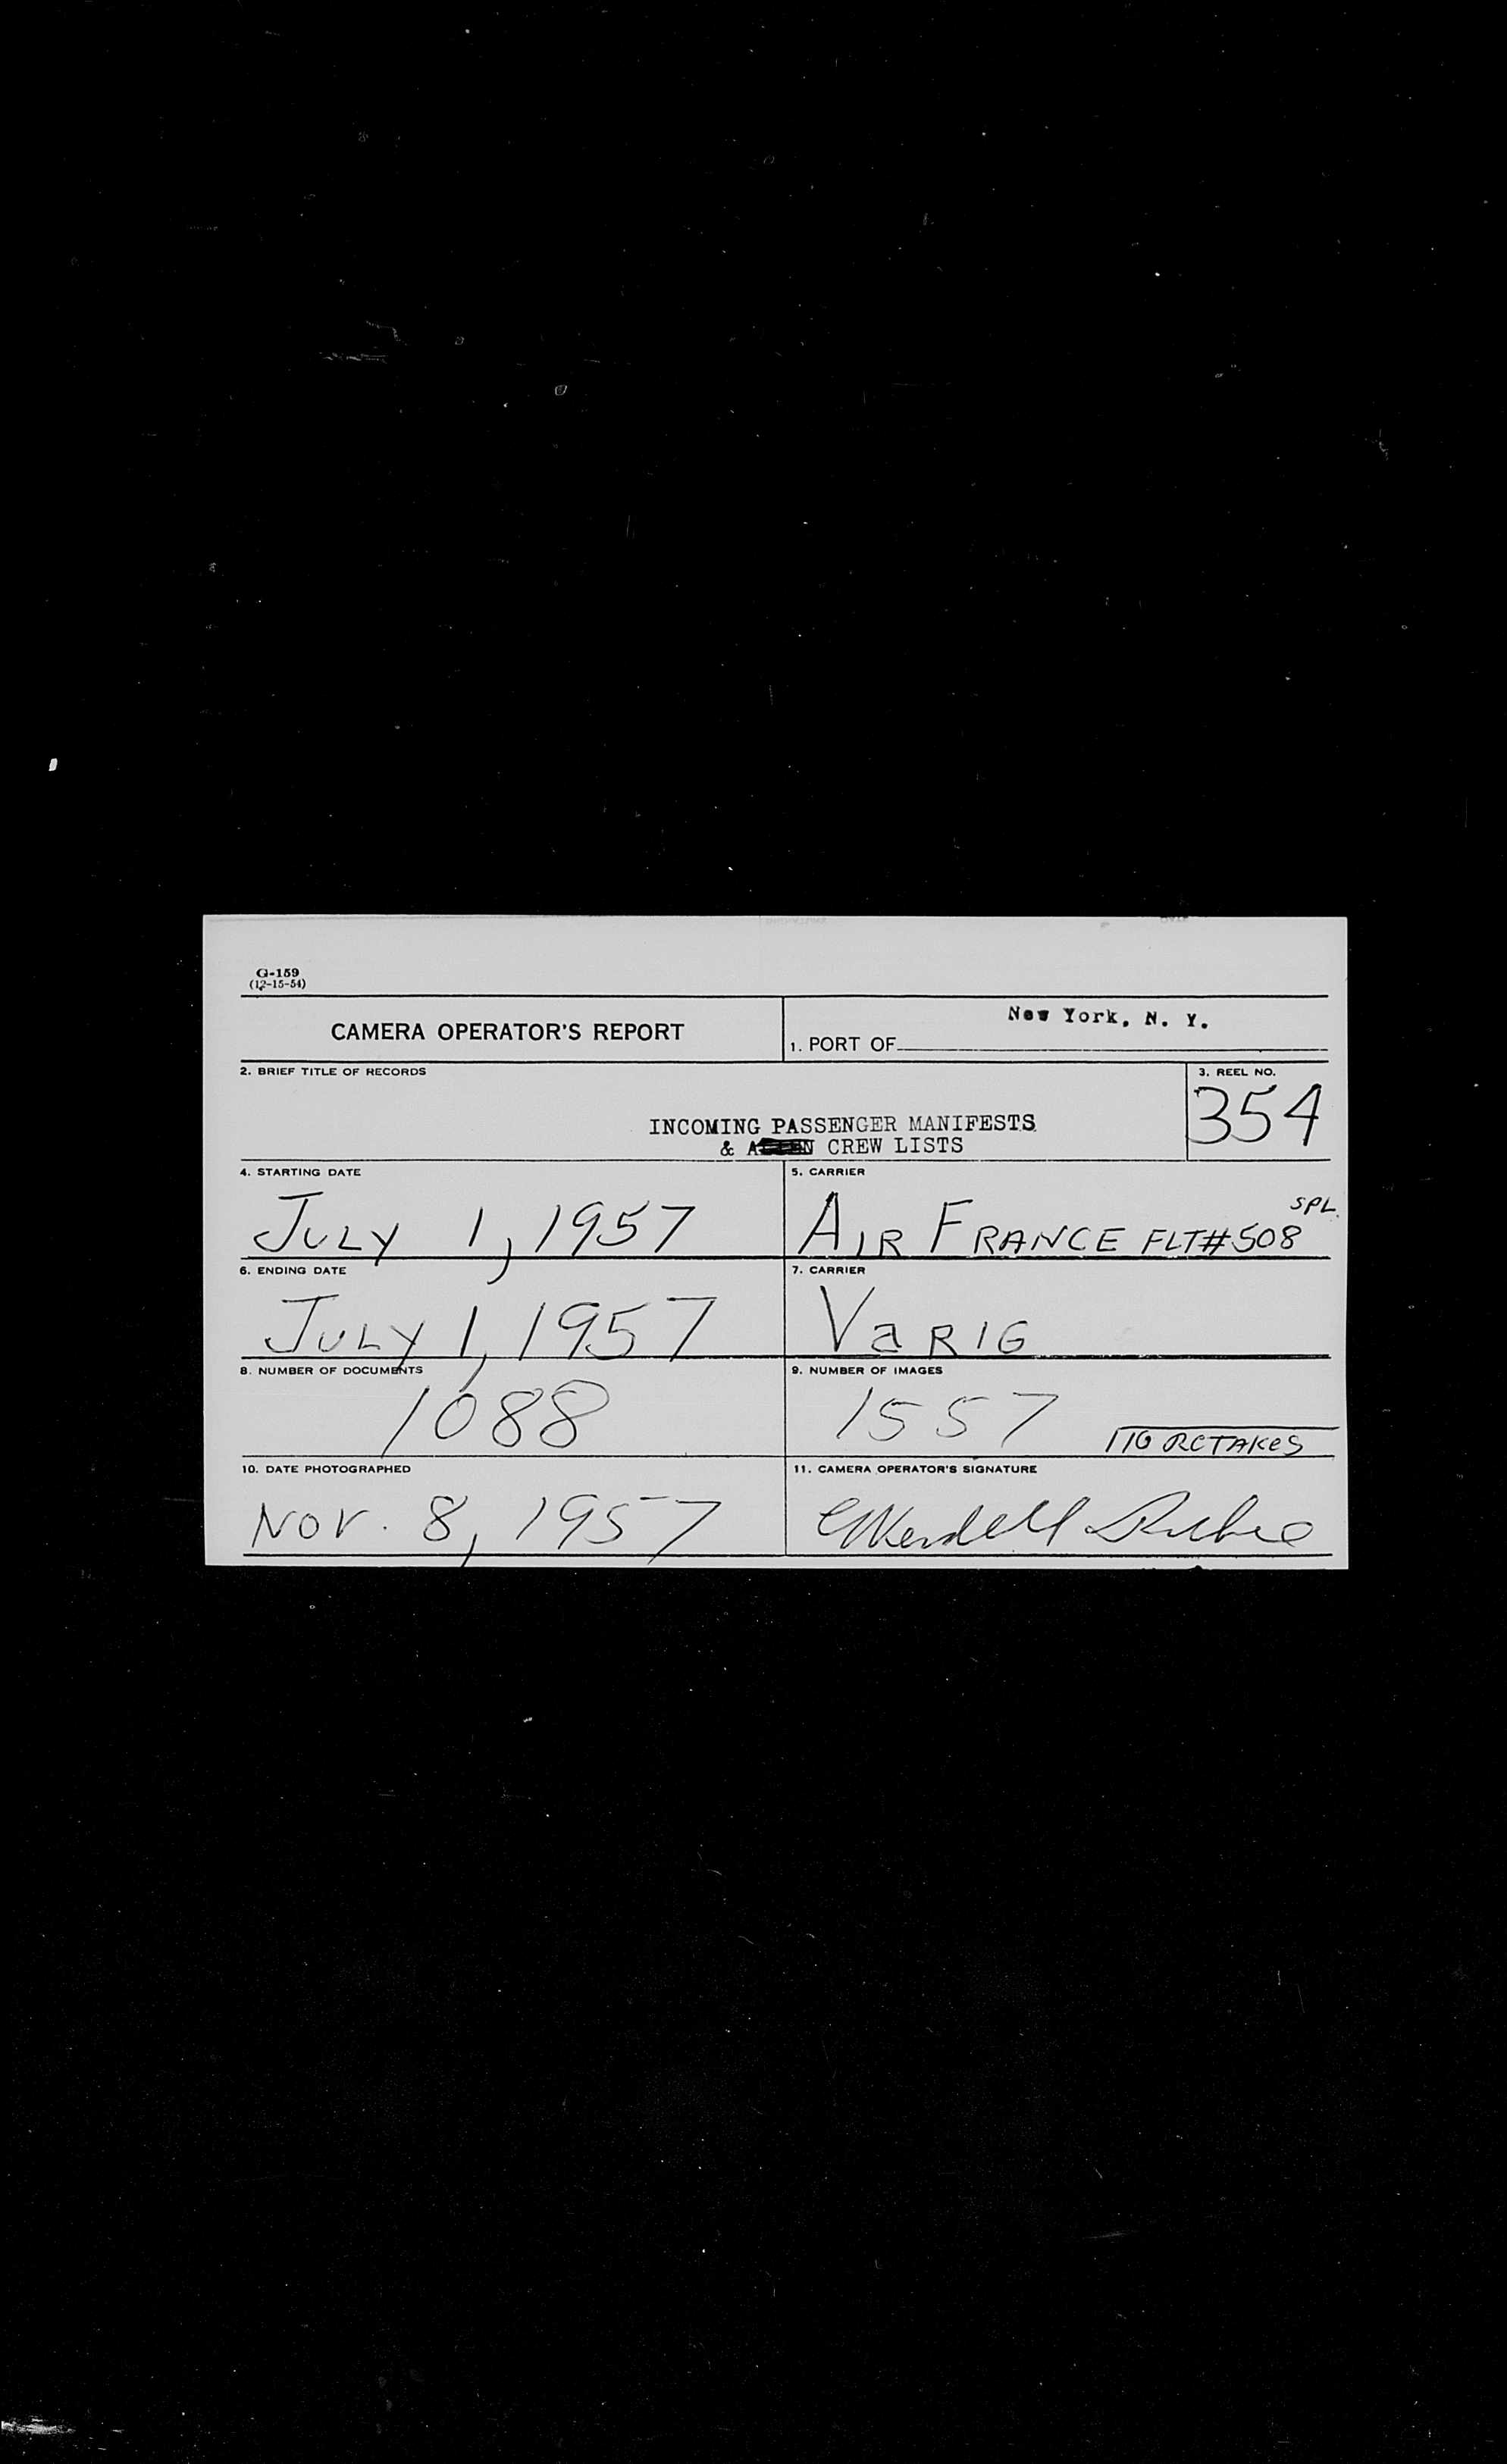 G-159
(12-15-54)
CAMERA OPERATOR'S REPORT
1. PORT OF New York, N. Y.
2. BRIEF TITLE OF RECORDS
3. REEL NO.
354
INCOMING PASSENGER MANIFESTS
& CREW LISTS
4. STARTING DATE
JULY 1, 1957
5. CARRIER
AIR FRANCE FLT#508 SPL.
6. ENDING DATE
JULY 1, 1957
7. CARRIER
VaRIG
8. NUMBER OF DOCUMENTS
1088
9. NUMBER OF IMAGES
1557
RETAKES
10. DATE PHOTOGRAPHED
NOV. 8, 1957
11. CAMERA OPERATOR'S SIGNATURE
Wendell